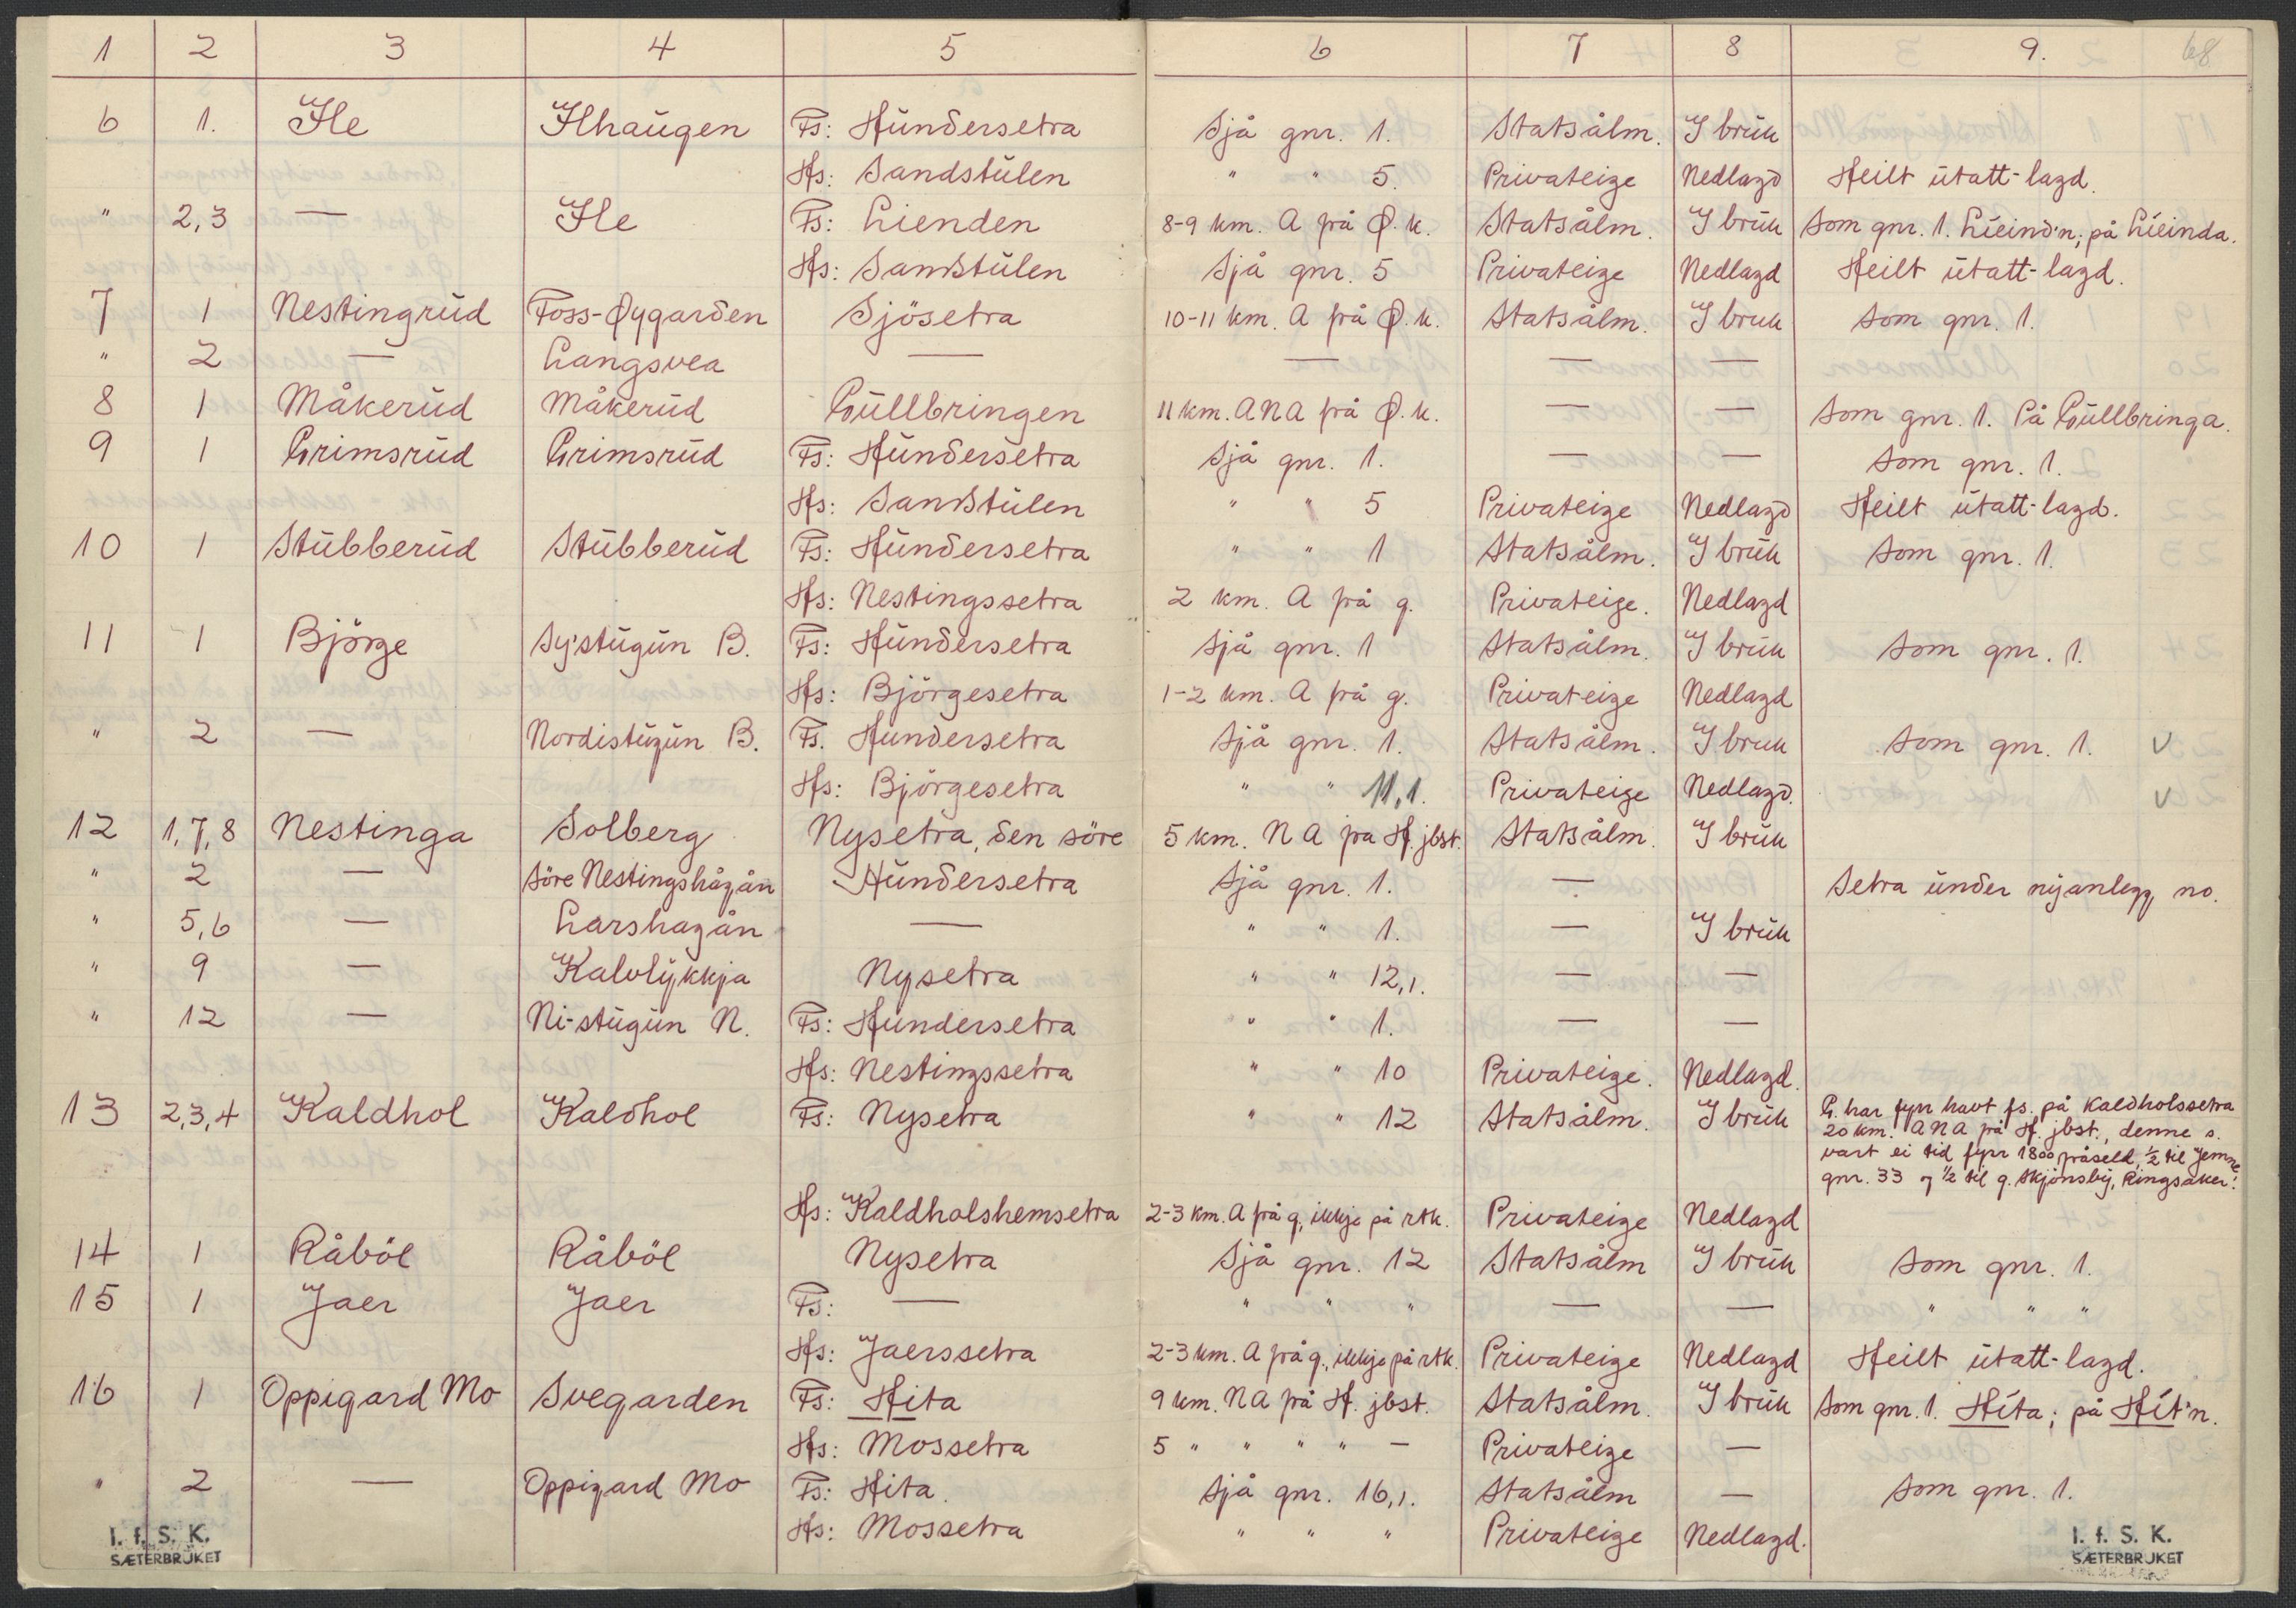 1 2 3 4 5 6 7 8 9. 68
6 1. Ile Ilhaugen Fs: Hundersetra Sjå gnr. 1. Statsålm. I bruk
Hs: Sandstulen " " 5. Privateige Nedlagd Heilt utatt-lagd.
" 2,3 — Ile Fs: Lienden 8-9 km. A frå Ø.k. Statsålm. I bruk Som gnr. 1. Líeind'n; på Líeinda.
Hs: Sandstulen Sjå gnr. 5 Privateige Nedlagd Heilt utatt-lagd.
7 1 Nestingrud Foss-Øygarden Sjösetra 10-11 km. A frå Ø.k. Statsålm. I bruk Som gnr. 1.
" 2 — Langsvea — — — —
8 1 Måkerud Måkerud Gullbringen 11 km. ANA frå Ø.k. — — Som gnr. 1. På Gullbringa.
9 1 Grimsrud Grimsrud Fs: Hundersetra Sjå gnr. 1. — — Som gnr. 1.
Hs: Sandstulen " " 5 Privateige Nedlagd Heilt utatt-lagd.
10 1 Stubberud Stubberud Fs: Hundersetra " " 1 Statsålm. I bruk Som gnr. 1.
Hs: Nestingssetra 2 km. A frå g. Privateige. Nedlagd
11 1 Björge Sy'stugun B. Fs: Hundersetra Sjå gnr. 1 Statsålm. I bruk Som gnr. 1.
Hs: Björgesetra 1-2 km. A frå g. Privateige Nedlagd
" 2 — Nordistugun B. Fs. Hundersetra Sjå gnr. 1. Statsålm. I bruk Som gnr. 1. v
Hs: Björgesetra " " 11,1. Privateige Nedlagd. v
12 1,7,8 Nestinga Solberg Nysetra, den söre 5 km. NA frå H. jbst. Statsålm. I bruk
" 2 — Söre Nestingshågån Hundersetra Sjå gnr. 1. — Setra under nyanlegg no.
" 5,6 — Larshagån — " " 1. — I bruk
" 9 — Kalvlykkja Nysetra " " 12,1. — —
" 12 — Ni-stugun N. Fs: Hundersetra " " 1. — —
Hs: Nestingssetra " " 10 Privateige. Nedlagd.
13 2,3,4 Kaldhol Kaldhol Fs: Nysetra " " 12 Statsålm. I bruk G. har fyrr havt fs. på Kaldholssetra
20 km. ANA frå H. jbst., denne s.
vart ei tid fyrr 1800 fråseld, ½ til Jemne
gnr. 33 og ½ til g. Skjönsby, Ringsaker.
Hs: Kaldholshemsetra 2-3 km. A frå g., ikkje på rtk. Privateige Nedlagd
14 1 Råböl Råböl Nysetra Sjå gnr. 12 Statsålm I bruk Som gnr. 1.
15 1 Jaer Jaer Fs: — " " " — — " " "
Hs: Jaerssetra 2-3 km. A frå g., ikkje på rtk. Privateige Nedlagd Heilt utatt-lagd.
16 1 Oppigard Mo Svegarden Fs: Hita 9 km. NA frå H. jbst. Statsålm. I bruk Som gnr. 1. Híta; på Hít'n.
Hs: Mossetra 5 " " " " — Privateige —
" 2 — Oppigard Mo Fs: Hita. Sjå gnr. 16,1. Statsålm — Som gnr. 1.
Hs: Mossetra " " " Privateige Nedlagd.
I. f. S. K.
SÆTERBRUKET
I. f. S. K.
SÆTERBRUKET